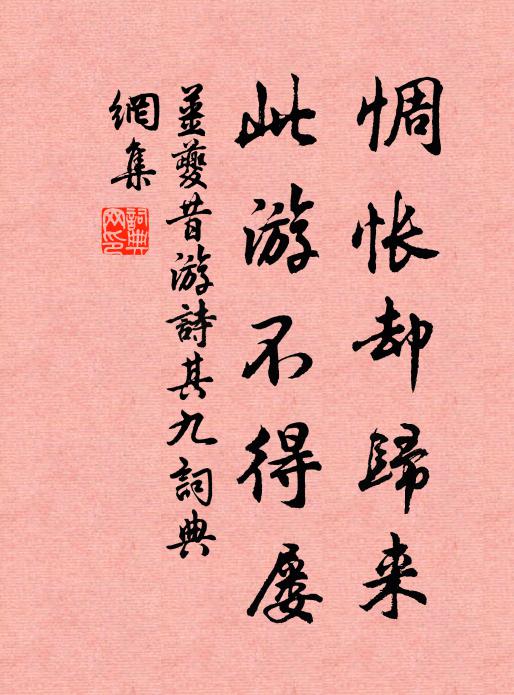 惆怅却歸来
此游不得屡
姜夔昔游詩其九詞典
網集
詞典
网印